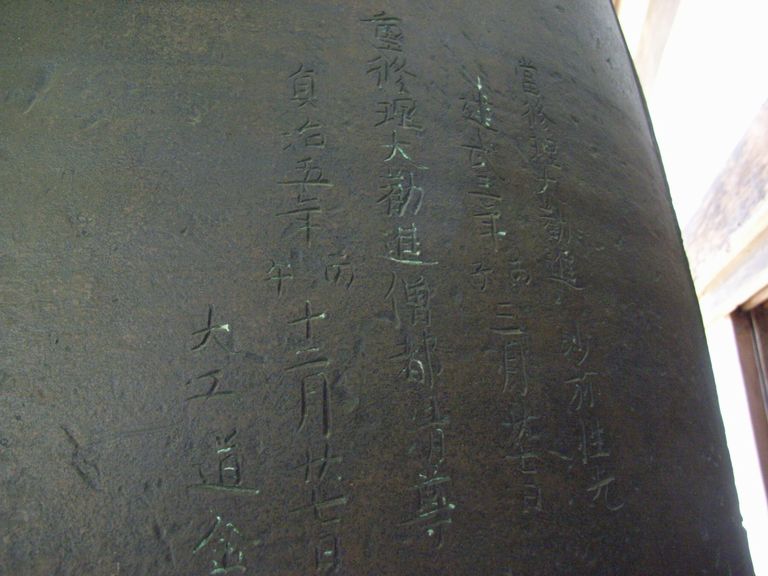 當修理大勸進 沙弥性光
建武三年丙子三月廿七日
重修理大勸進僧都清尊
貞治五年丙午十二月廿七日
大工道金